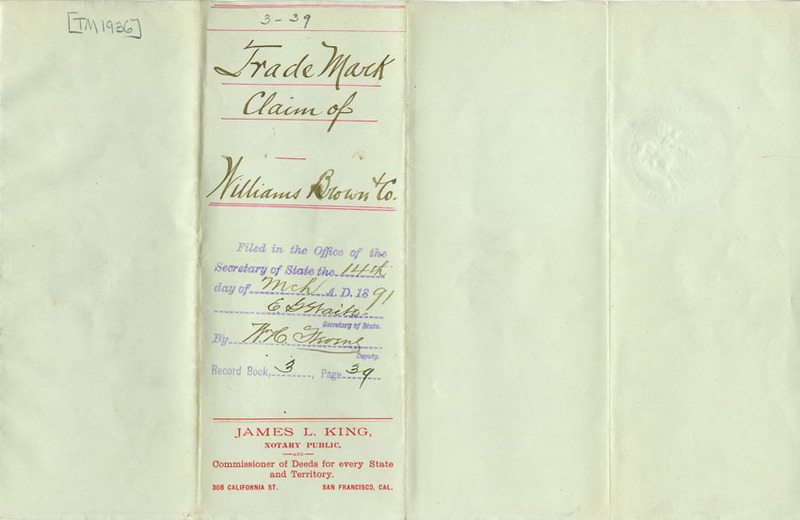 [TM 1936]
3-39
Trade Mark
Claim of
Williams Brown & Co.
Filed in the Office of the
Secretary of State the 14th
day of Mch A.D. 1891
E G Waite
Secretary of State.
By W. H. Thorne
Deputy.
Record Book, 3, Page 39
JAMES L. KING,
NOTARY PUBLIC,
—AND—
Commissioner of Deeds for every State
and Territory.
308 CALIFORNIA ST. SAN FRANCISCO, CAL.